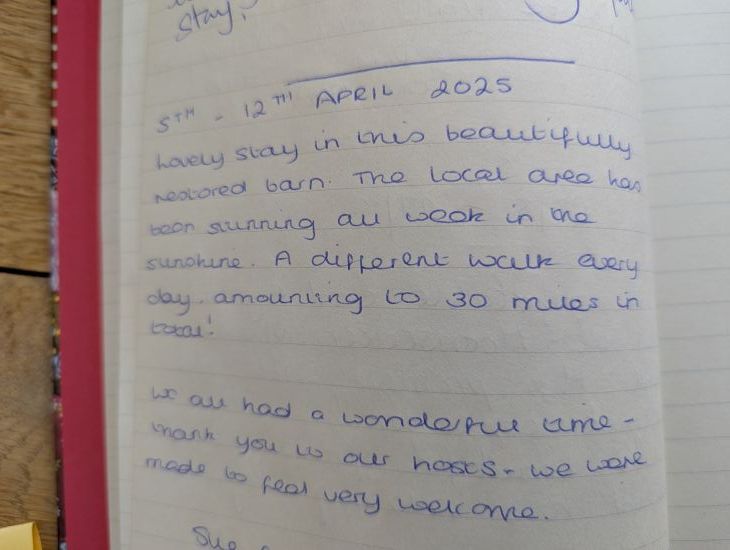 stay!
5TH - 12TH APRIL 2025
Lovely stay in this beautifully
restored barn. The local area has
been stunning all week in the
sunshine. A different walk every
day amounting to 30 miles in
total!
We all had a wonderful time -
thank you to our hosts - we were
made to feel very welcome.
Sue